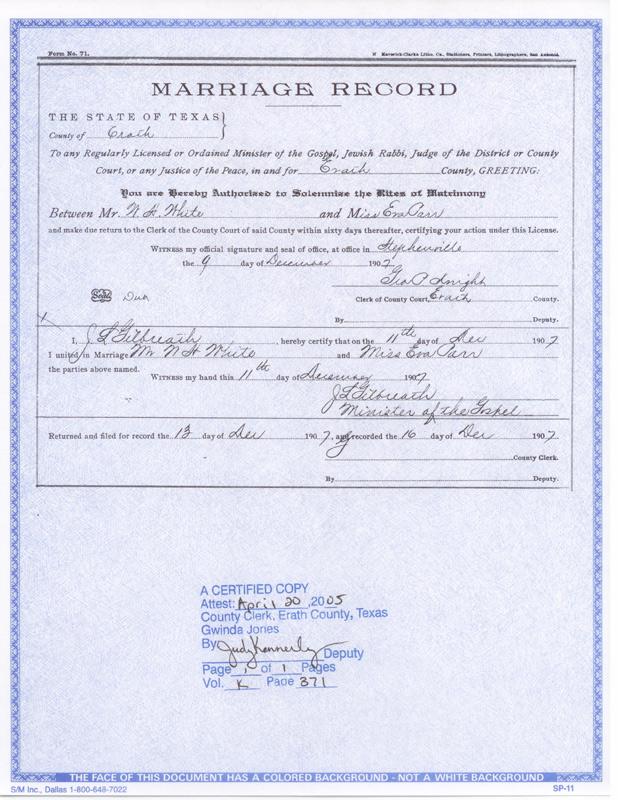 Form No. 71. Maverick-Clarke Litho. Co., Stationers, Printers, Lithographers, San Antonio.
MARRIAGE RECORD
THE STATE OF TEXAS
County of Erath
To any Regularly Licensed or Ordained Minister of the Gospel, Jewish Rabbi, Judge of the District or County
Court, or any Justice of the Peace, in and for Erath County, GREETING:
You are Hereby Authorized to Solemnize the Rites of Matrimony
Between Mr. W. H. White and Miss Eva Parr
and make due return to the Clerk of the County Court of said County within sixty days thereafter, certifying your action under this License.
WITNESS my official signature and seal of office, at office in Stephenville
the 9 day of December 1907
Geo P Knight
Seal Clerk of County Court, Erath County.
By Deputy.
I, J L Gilbreath, hereby certify that on the 11th day of Dec 1907
I united in Marriage Mr. W H White and Miss Eva Parr
the parties above named.
WITNESS my hand this 11th day of December 1907
J L Gilbreath
Minister of the Gospel
Returned and filed for record the 13 day of Dec 1907, and recorded the 16 day of Dec 1907
County Clerk.
By Deputy.
A CERTIFIED COPY
Attest: April 20, 2005
County Clerk, Erath County, Texas
Gwinda Jones
By Judy Kennerly Deputy
Page 1 of 1 Pages
Vol. K Page 371
THE FACE OF THIS DOCUMENT HAS A COLORED BACKGROUND - NOT A WHITE BACKGROUND
S/M Inc., Dallas 1-800-648-7022 SP-11